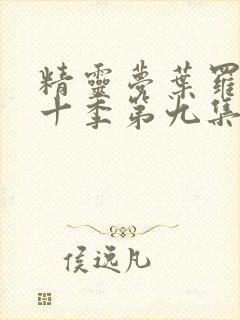 精靈夢葉羅
十季第九集
侯远凡